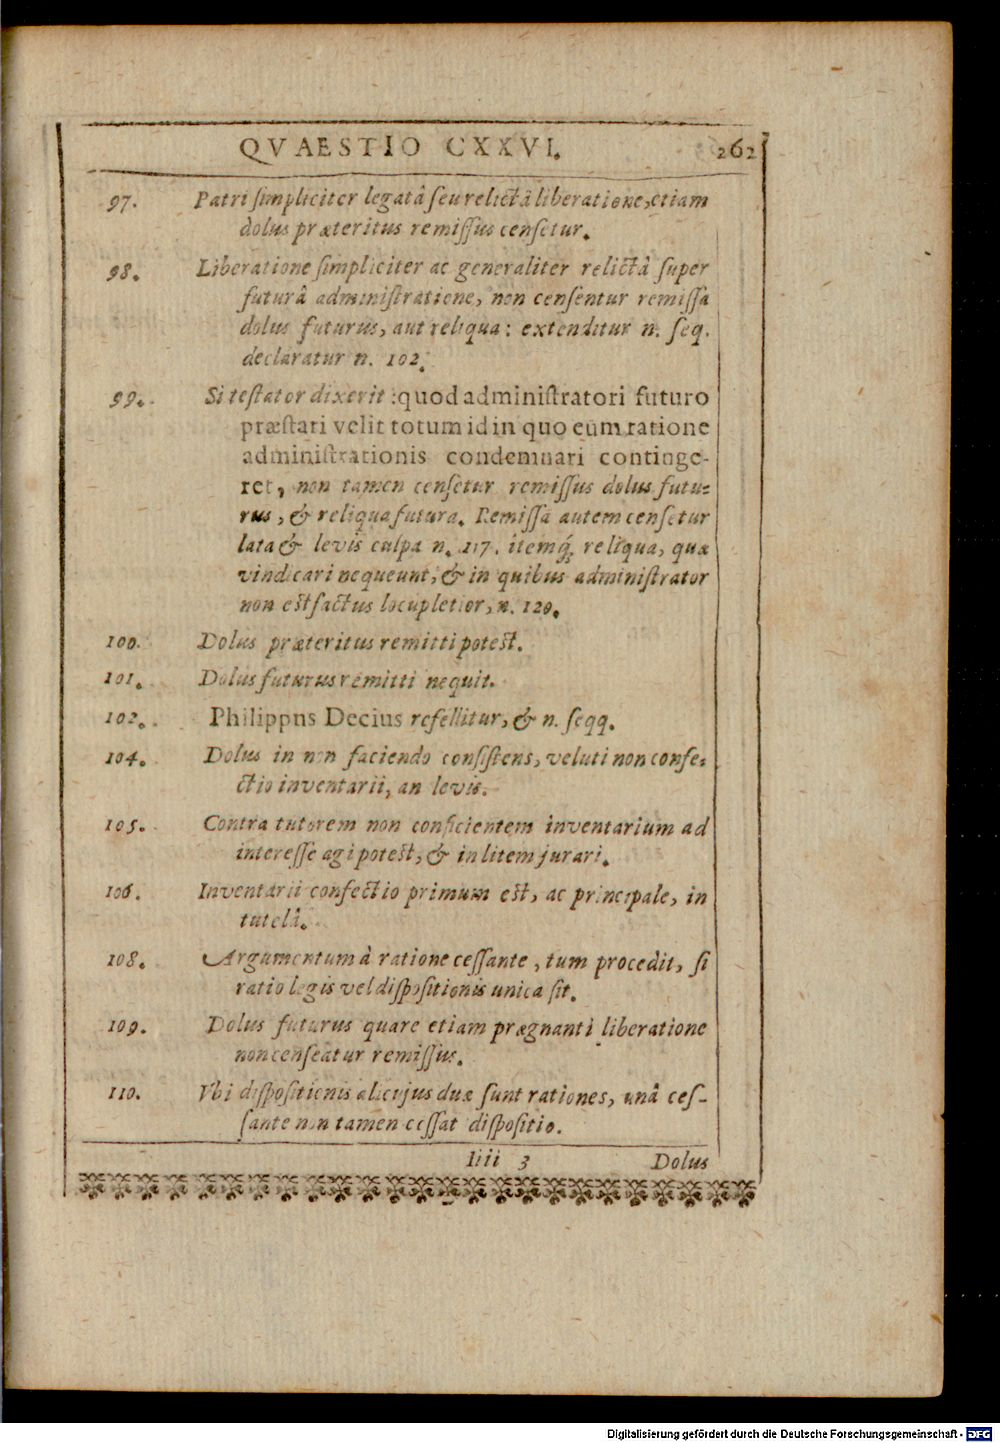 QVAESTIO CXXVI. 262
97. Patri simpliciter legatâ seu relictâ liberatione, etiam
dolus præteritus remissus censetur.
98. Liberatione simpliciter ac generaliter relictâ super
futurâ administratiene, non censentur remissa
dolus futurus, aut reliqua: extenditur n. seq.
declaratur n. 102.
99. Si testator dixerit: quod administratori futuro
præstari velit totum id in quo eum ratione
administrationis condemnari continge-
ret, non tamen censetur remissus dolus futu-
rus, & reliqua futura. Remissa autem censetur
lata & levis culpa n. 117. itemq́; reliqua, quæ
vindicari nequeunt, & in quibus administrator
non est factus locupletior, n. 120.
100. Dolus præteritus remitti potest.
101. Dolus futurus remitti nequit.
102. Philippus Decius refellitur, & n. seqq.
104. Dolus in non faciendo consistens, veluti non confe-
ctio inventarii, an levis.
105. Contra tutorem non conficientem inventarium ad
interesse agi potest, & in litem jurari.
106. Inventarii confectio primum est, ac principale, in
tutelâ.
108. Argumentum à ratione cessante, tum procedit, si
ratio legis vel dispositionis unica sit.
109. Dolus futurus quare etiam prægnanti liberatione
non censeatur remissus.
110. Vbi dispositienis alicujus duæ sunt rationes, unâ ces-
sante non tamen cessat dispositio.
Iiii 3 Dolus
Digitalisierung gefördert durch die Deutsche Forschungsgemeinschaft - DFG